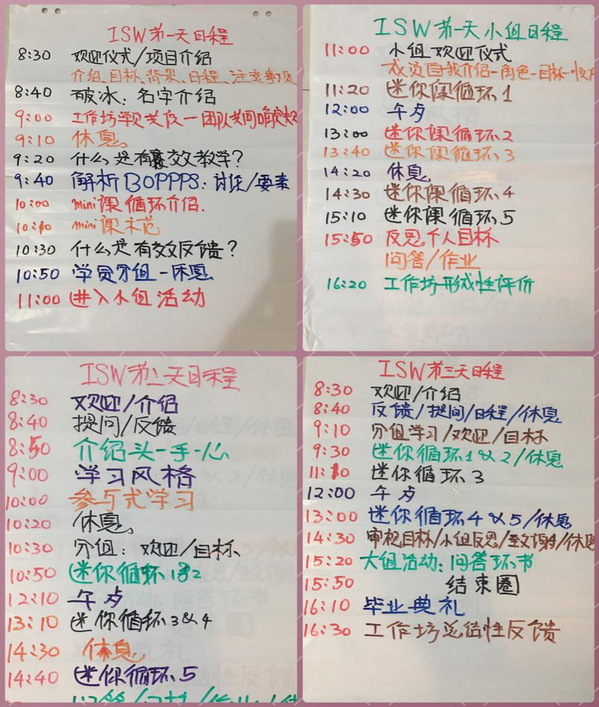 ISW第一天日程
8:30 欢迎仪式/项目介绍
介绍、目标、背景、日程、注意事项
8:40 破冰：名字介绍
9:00 工作坊学员
9:10 休息
9:20 什么是有效教学？
9:40 解析BOPPPS：讨论/要素
10:00 mini课循环介绍
10:10 mini课示范
10:30 什么是有效反馈？
10:50 学员分组-休息
11:00 进入小组活动
ISW第一天小组日程
11:00 小组欢迎仪式
成员自我介绍-角色-目标-收
11:20 迷你课循环1
12:00 午歺
13:00 迷你课循环2
13:40 迷你课循环3
14:20 休息
14:30 迷你课循环4
15:10 迷你课循环5
15:50 反思个人目标
问答/作业
16:20 工作坊形成性评价
ISW第二天日程
8:30 欢迎/介绍
8:40 提问/反馈
8:50 介绍头-手-心
9:00 学习风格
10:00 参与式学习
10:20 休息
10:30 分组：欢迎/目标
10:50 迷你循环1&2
12:10 午歺
13:10 迷你循环3&4
14:30 休息
14:40 迷你循环5
ISW第三天日程
8:30 欢迎/介绍
8:40 反馈/提问/日程/休息
9:10 分组学习/欢迎/目标
9:30 迷你循环1&2/休息
11:10 迷你循环3
12:00 午歺
13:00 迷你循环4&5/休息
14:30 审视目标/小组反思/致谢/休息
15:20 大组活动：问答环书
15:50 结束圈
16:10 毕业典礼
16:30 工作坊总结性反馈